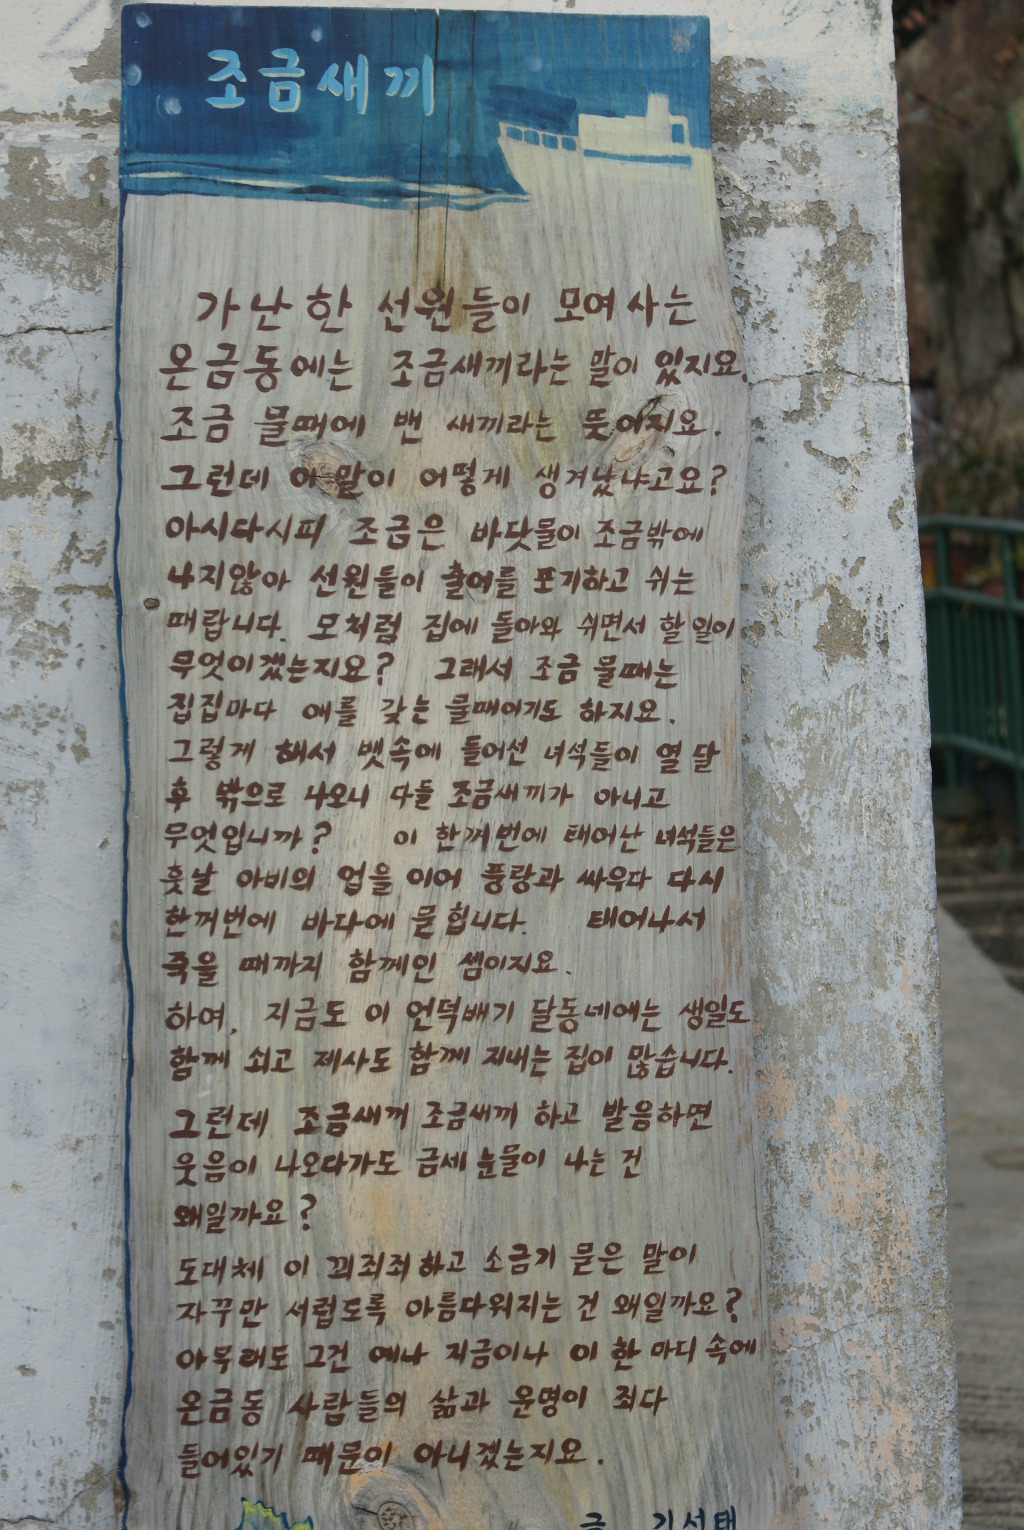 조금새끼
가난한 선원들이 모여사는
온금동에는 조금새끼라는 말이 있지요.
조금 물때에 밴 새끼라는 뜻이지요.
그런데 이 말이 어떻게 생겨났냐고요?
아시다시피 조금은 바닷물이 조금밖에
나지않아 선원들이 출어를 포기하고 쉬는
때랍니다. 모처럼 집에 돌아와 쉬면서 할일이
무엇이겠는지요? 그래서 조금 물때는
집집마다 애를 갖는 물때이기도 하지요.
그렇게 해서 뱃속에 들어선 녀석들이 열달
후 밖으로 나오니 다들 조금새끼가 아니고
무엇입니까? 이 한꺼번에 태어난 녀석들은
훗날 아비의 업을 이어 풍랑과 싸우다 다시
한꺼번에 바다에 묻힙니다. 태어나서
죽을 때까지 함께인 셈이지요.
하여, 지금도 이 언덕배기 달동네에는 생일도
함께 쇠고 제사도 함께 지내는 집이 많습니다.
그런데 조금새끼 조금새끼 하고 발음하면
웃음이 나오다가도 금세 눈물이 나는 건
왜일까요?
도대체 이 꾀죄죄하고 소금기 묻은 말이
자꾸만 서럽도록 아름다워지는 건 왜일까요?
아무래도 그건 예나 지금이나 이 한 마디 속에
온금동 사람들의 삶과 운명이 죄다
들어있기 때문이 아니겠는지요.
글 김선태